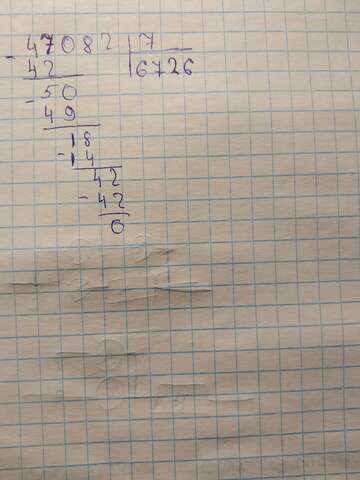 - 47082 | 7
42 | 6726
- 50
49
18
- 14
42
- 42
0